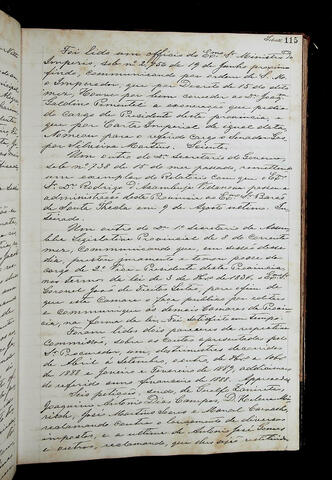 115
Foi lido um officio do Exmo Sr Ministro do
Imperio, sob nº 2,956 de 19 de Junho proximo
findo, communicando por ordem de S. M.
o Imperador, que por Decreto de 15 do dito
mez, Houve por bem conceder ao Dr.
Galdino Pimentel a exoneração que pedio
do cargo de Presidente desta provincia, e
que por Carta Imperial de igual data,
Nomeou para o referido cargo o Senador
Silveira Martins. Sciente.
Um outro do Sr. secretario do Governo,
sob nº de 15 do mez passado, remettendo
um exemplar do Relatorio com que o Exmo
Sr. Dr. Rodrigo d'Azambuja Villanova passou a
administração desta Provincia ao Exmo Sr. Barão
de Santa Thecla em 9 de Agosto ultimo. In-
teirado.
Um outro do Dr. 1º Secretario da Assem-
bléa Legislativa Provincial de 8 do corrente
mez, communicando que, em sessão desse
dia, prestou juramento e tomou posse do
cargo de 2º Vice Presidente desta Provincia,
nos termos da lei de 3 de 1834, o Exmo Sr.
Coronel José de Freitas para o fim de
que esta Camara o faça publico por editaes
e communique as demais Camaras da Provin-
cia, na forma da lei. Foi satisfeito em tempo.
Foram lidos dois pareceres da respectiva
Commissão, sobre as contas apresentadas pelo
Sr. Procurador, um, dos trimestres decorridos
de Abril a Setembro, e outro, de
de 1888 a Janeiro e Fevereiro de 1889, addicional
do referido anno financeiro de 1888. Approvados
Seis petições, sendo, de
Joaquim Antonio Dias Campos, D.
José Martins Soares e Manoel Carvalho,
reclamando contra o lançamento de diversos
impostos, e a ultima de Antonio José Gomes
e outros, reclamando, que